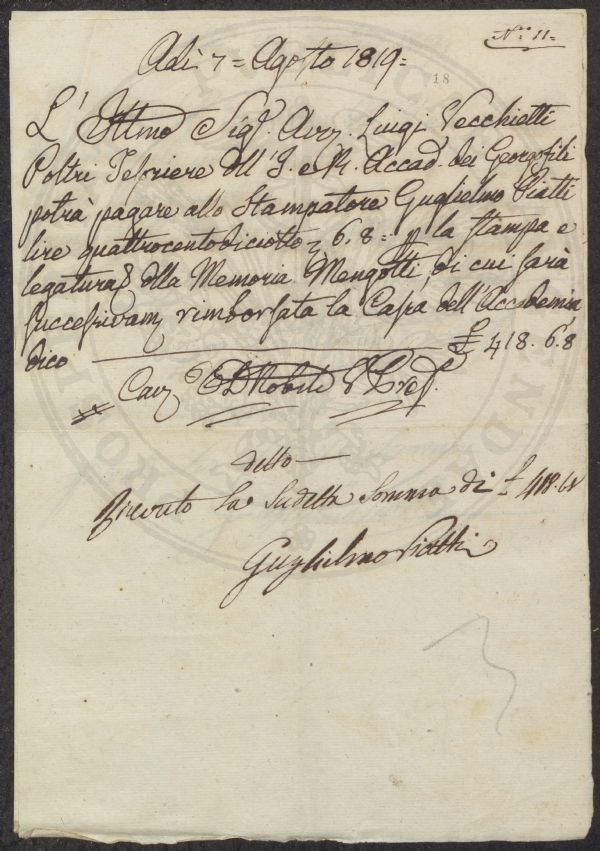 N.° 11=
Adì 7= Agosto 1819=
18
L' Illmo Sig.r Avv. Luigi Vecchietti
Poltri Tesoriere dell' I. e R. Accad. dei Georgofili
potrà pagare allo Stampatore Guglielmo Piatti
lire quattrocentodiciotto 6.8= la stampa e
legatura della Memoria Mengotti, di cui sarà
successivam rimborsata la Cassa dell'Accademia
dico £ 418. 6.8
Cav
detto
Ricevuto la Sudetta Somma di £ 418.6.8
Guglielmo Piatti